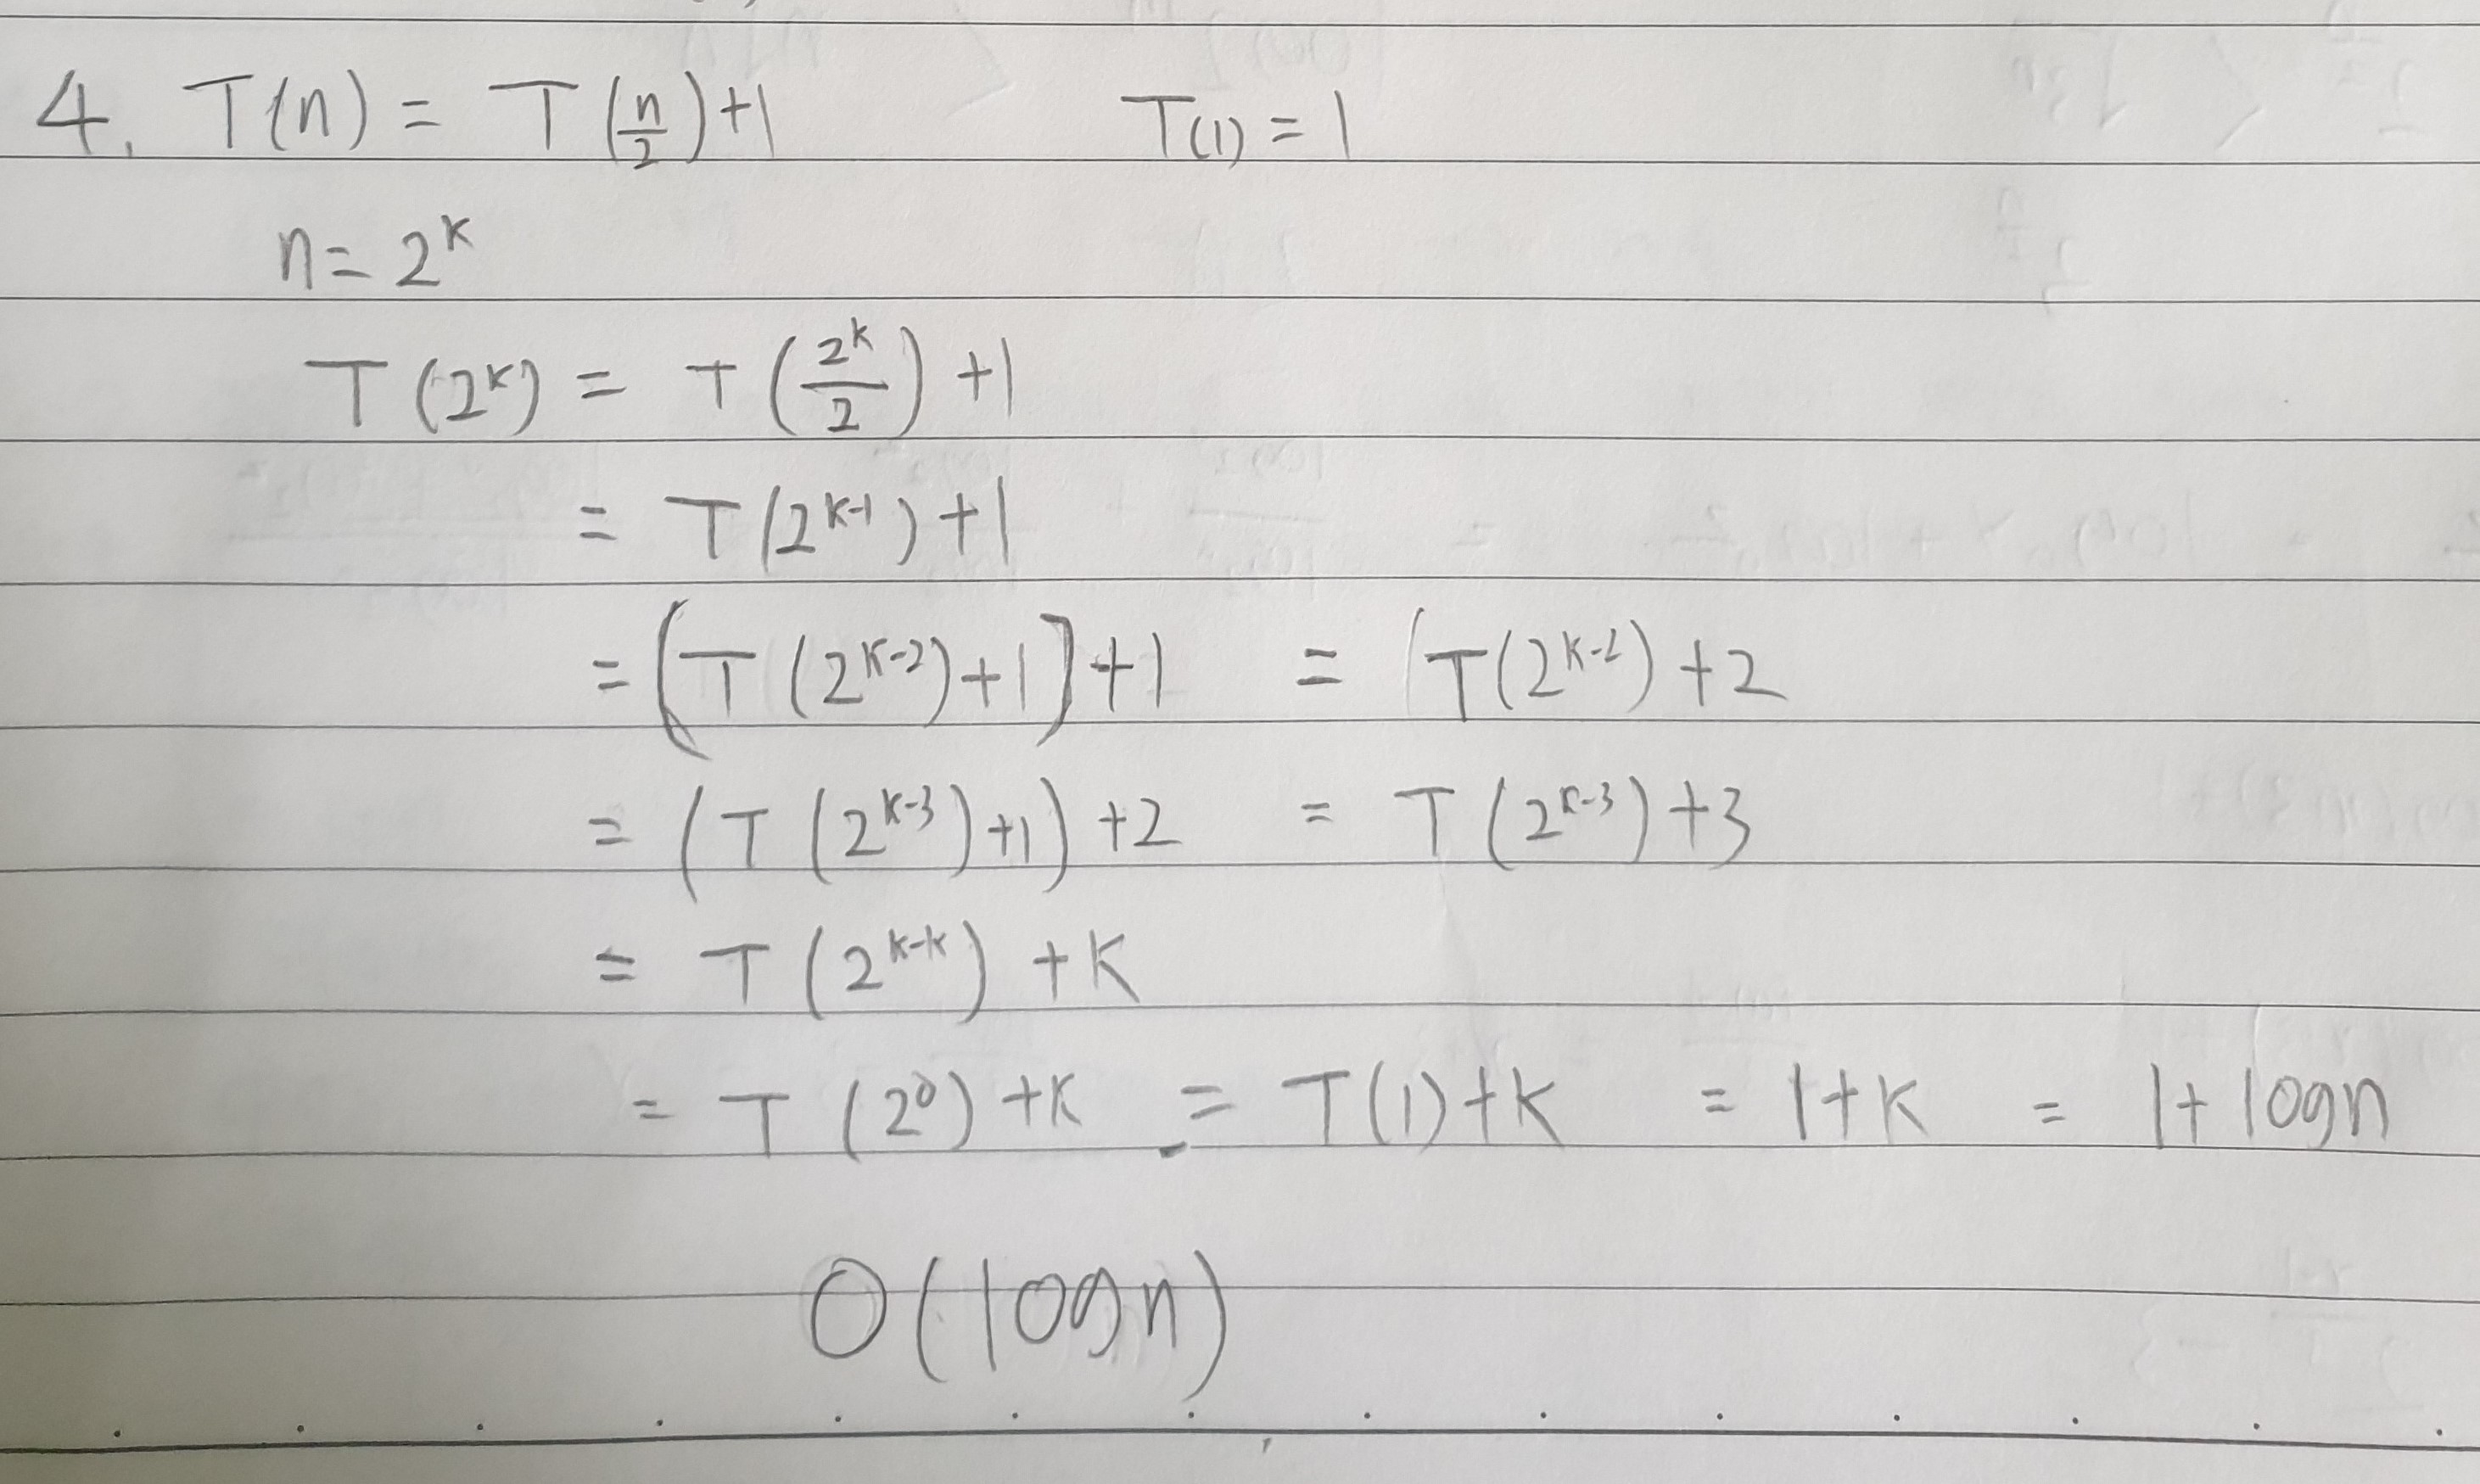 4. T(n) = T(n/2)+1 T(1) = 1
n = 2^k
T(2^k) = T(2^k/2) +1
= T(2^(k-1)) +1
= [T(2^(k-2))+1]+1 = (T(2^(k-2)) +2
= (T(2^(k-3))+1) +2 = T(2^(k-3)) +3
= T(2^(k-k)) +k
= T(2^0) +k = T(1)+k = 1+k = 1+logn
O(logn)